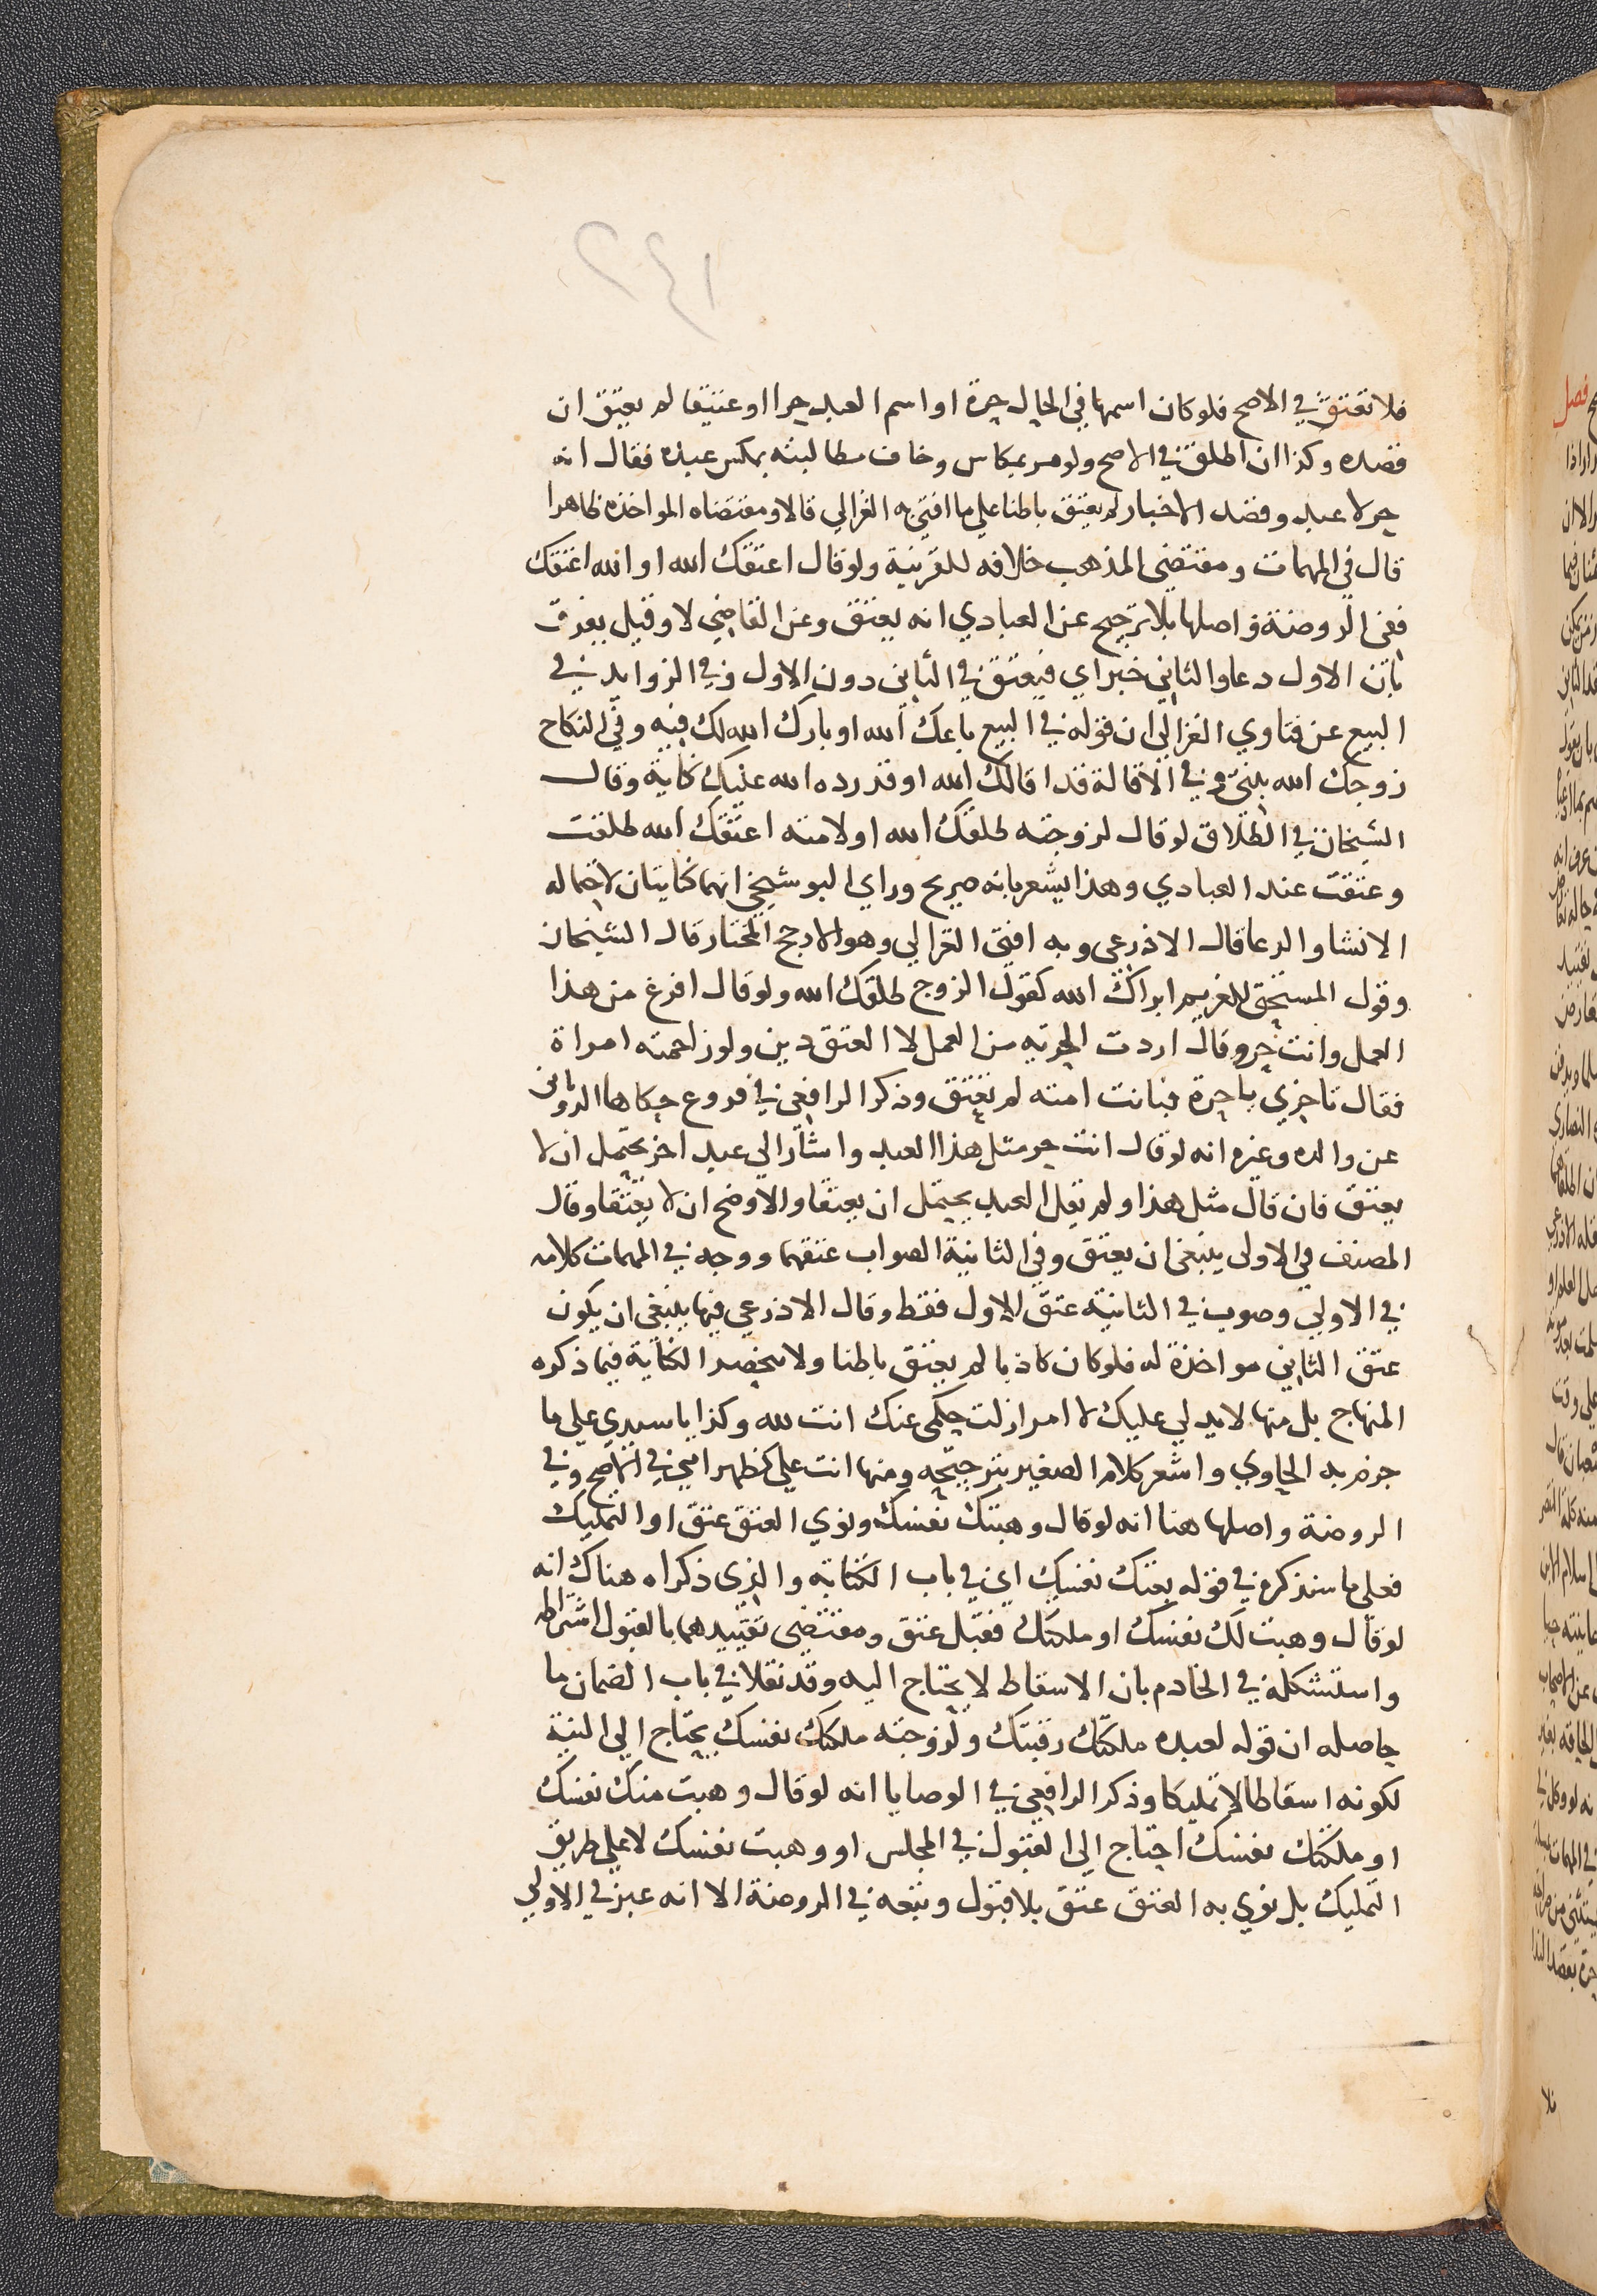 ٢٤١
فلا تعتق في الاصح فلو كان اسمها في الحال حرة او اسم العبد حرا او عتيقا لم يعتق ان
قصده وكذا ان اطلق في الاصح ولو مر بمكاس وخاف مطالبته بمكس عبده فقال انه
حر لا عبد وقصد الاخبار لم يعتق باطنا علي ما افتي به الغزالي قالا ومقتضاه المواخذه ظاهرا
قال في المهمات ومقتضي المذهب خلافه للقرينة ولو قال اعتقك الله او الله اعتقك
ففي الروضة واصلها بلا ترجيح عن العبادي انه يعتق وعن القاضي لا وقيل يفرق
بان الاول دعا والثاني خبر اي فيعتق في الثاني دون الاول وفي الزوايد في
البيع عن فتاوي الغزالي ان قوله في البيع باعك الله او بارك الله لك فيه وفي النكاح
زوجك الله بنتي وفي الاقالة قد اقالك الله او قد رده الله عليك كناية وقال
الشيخان في الطلاق لو قال لزوجته طلقك الله او لامته اعتقك الله طلقت
وعتقت عند العبادي وهذا يشعر بانه صريح وراي البوشنجي انهما كنايتان لاحتماله
الانشا والدعا قال الاذرعي وبه افتي الغزالي وهو الارجح المختار قال الشيخان
وقول المستحق للغريم ابراك الله كقول الزوج طلقك الله ولو قال افرغ من هذا
العمل وانت حر وقال اردت الحرية من العمل لا العتق دين ولو زاحمته امراة
فقال تاخري يا حرة فبانت امته لم تعتق وذكر الرافعي في فروع حكاها الروياني
عن والده وغيره انه لو قال انت حر مثل هذا العبد واشار الي عبد اخر يحتمل ان لا
يعتق فان قال مثل هذا ولم يقل العبد يحتمل ان يعتقا والاوضح ان لا يعتقا وقال
المصنف في الاولي ينبغي ان يعتق وفي الثانية الصواب عتقهما ووجه في المهمات كلامه
في الاولي وصوب في الثانية عتق الاول فقط وقال الاذرعي فيها ينبغي ان يكون
عتق الثاني مواخذة له فلو كان كاذبا لم يعتق باطنا ولا تنحصر الكناية فيما ذكره
المنهاج بل منها لا يد لي عليك لا امر ازلت حكمي عنك انت لله وكذا يا سيدي علي ما
جزم به الحاوي واشعر كلام الصغير بترجيحه ومنها انت علي كظهر امي في الاصح وفي
الروضة واصلها هنا انه لو قال وهبتك نفسك ونوي العتق عتق او التمليك
فعلي ما سنذكره في قوله بعتك نفسك اي في باب الكتابة والذي ذكراه هناك انه
لو قال وهبت لك نفسك او ملكتك فقبل عتق ومقتضي تقييدهما بالقبول اشتراطه
واستشكله في الخادم بان الاسقاط لا يحتاج اليه وقد نقلا في باب الضمان ما
حاصله ان قوله لعبده ملكتك رقبتك ولزوجته ملكتك نفسك يحتاج الي النية
لكونه اسقاطا لا تمليكا وذكر الرافعي في الوصايا انه لو قال وهبت منك نفسك
او ملكتك نفسك احتاج الي القبول في المجلس او وهبت نفسك لا علي طريق
التمليك بل نوي به العتق عتق بلا قبول وتبعه في الروضة الا انه عبر في الاولي